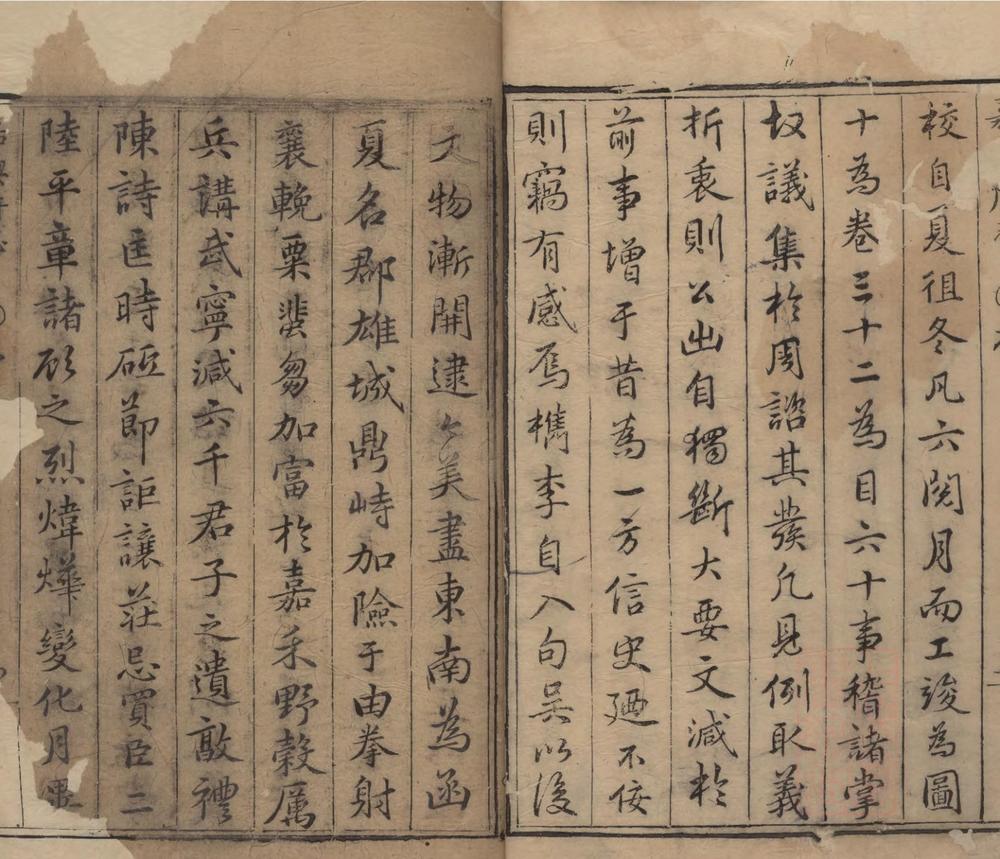 校自夏徂冬凡六閱月而工竣為圖
十為卷三十二為目六十事稽諸掌
故議集於周諮其發凡見例取義
折衷則公出自獨斷大要文減於
前事增于昔為一方信史廼不佞
則竊有感焉檇李自入句吳以後
文物漸開逮令美盡東南為函
夏名郡雄城鼎峙加險于由拳射
襄輓粟蜚芻加富於嘉禾野穀厲
兵講武寧減六千君子之遺敦禮
陳詩匡時砥節詎讓莊忌買臣二
陸平章諸顧之烈煒燁變化月